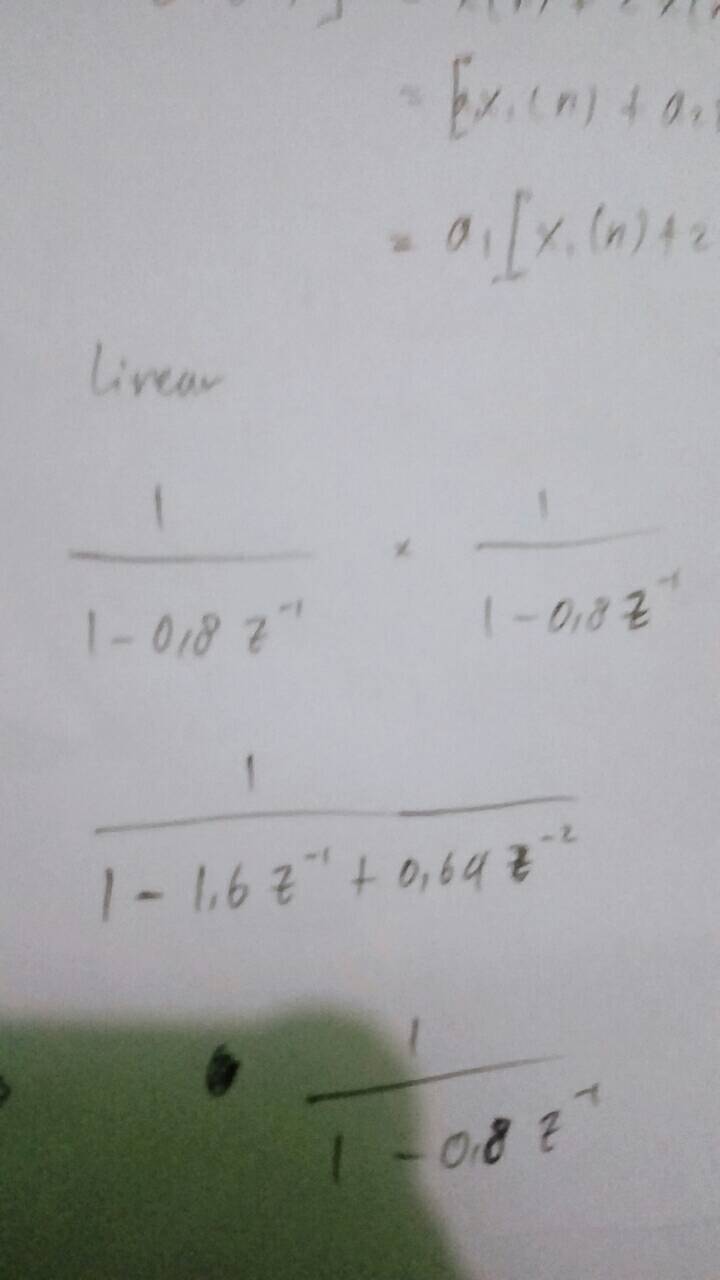 = [x₁(n) + a₂
= a₁[x₁(n)+2
Linear
1 / 1-0,8 z⁻¹ × 1 / 1-0,8 z⁻¹
1 / 1-1,6 z⁻¹ + 0,64 z⁻²
1 / 1-0,8 z⁻¹